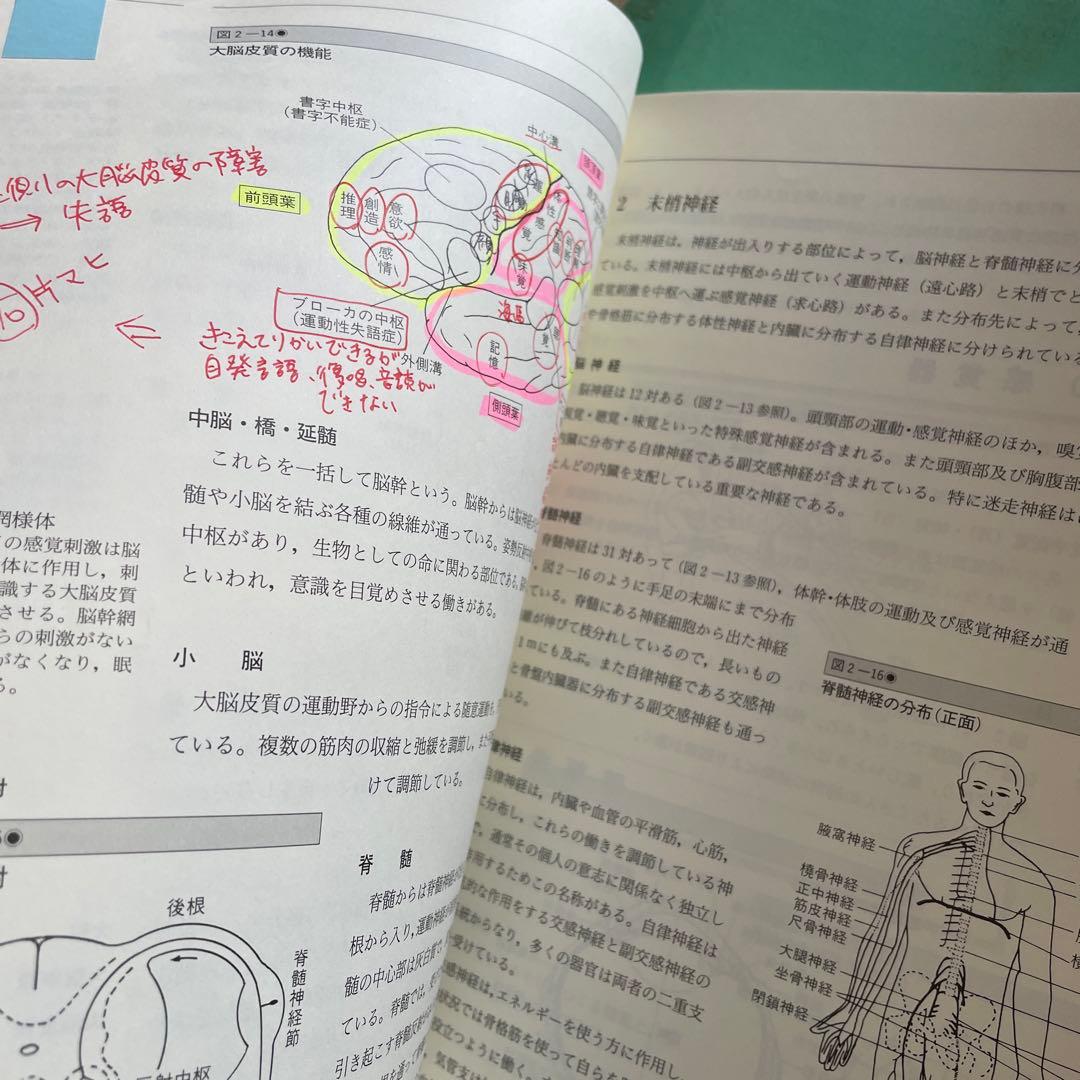 図2-14●
大脳皮質の機能
書字中枢
(書字不能症)
中心溝
前頭葉
推理
創造
意欲
感情
味覚
海馬
記憶
ブローカの中枢
(運動性失語症)
外側溝
側頭葉
の大脳皮質の障害
→ 失語
片マヒ
きこえてりかいできるが
自発言語、復唱、音読が
できない
中脳・橋・延髄
これらを一括して脳幹という。脳幹からは脳神経が
髄や小脳を結ぶ各種の線維が通っている。姿勢反射
中枢があり，生物としての命に関わる部位である。
といわれ，意識を目覚めさせる働きがある。
網様体
の感覚刺激は脳
体に作用し，刺
識する大脳皮質
させる。脳幹網
らの刺激がない
がなくなり，眠
る。
小　脳
大脳皮質の運動野からの指令による随意運動
ている。複数の筋肉の収縮と弛緩を調節し，また
けて調節している。
脊　髄
脊髄からは脊髄神経
根から入り，運動神経
髄の中心部は灰白質
ている。脊髄では，
引き起こす脊髄反射
後根
脊髄神経節
反射中枢
2　末梢神経
末梢神経は，神経が出入りする部位によって，脳神経と脊髄神経に分
ている。末梢神経には中枢から出ていく運動神経（遠心路）と末梢でと
感覚刺激を中枢へ運ぶ感覚神経（求心路）がある。また分布先によって，
や骨格筋に分布する体性神経と内臓に分布する自律神経に分けられている
脳神経
脳神経は12対ある（図2-13参照）。頭頸部の運動・感覚神経のほか，嗅覚
視覚・聴覚・味覚といった特殊感覚神経が含まれる。また頭頸部及び胸腹部
内臓に分布する自律神経である副交感神経が含まれている。特に迷走神経は
とんどの内臓を支配している重要な神経である。
脊髄神経
脊髄神経は31対あって（図2-13参照），体幹・体肢の運動及び感覚神経が通
，図2-16のように手足の末端にまで分布
ている。脊髄にある神経細胞から出た神経
維が伸びて枝分れしているので，長いもの
1mにも及ぶ。また自律神経である交感神
と骨盤内臓器に分布する副交感神経も通っ
いる。
律神経
自律神経は，内臓や血管の平滑筋，心筋，
に分布し，これらの働きを調節している神
で，通常その個人の意志に関係なく独立し
作用するためこの名称がある。自律神経は
的な作用をする交感神経と副交感神経の
統からなり，多くの器官は両者の二重支
受けている。
感神経は，エネルギーを使う方に作用し，
状況では骨格筋を使って自ら
役立つように働く。
図2-16●
脊髄神経の分布（正面）
腋窩神経
橈骨神経
正中神経
筋皮神経
尺骨神経
大腿神経
坐骨神経
閉鎖神経